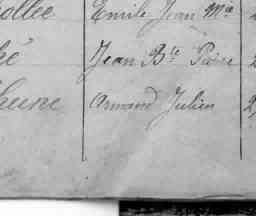 ollée Emile Jean Ma
é Jean Bte Pierre
heune Armand Julien